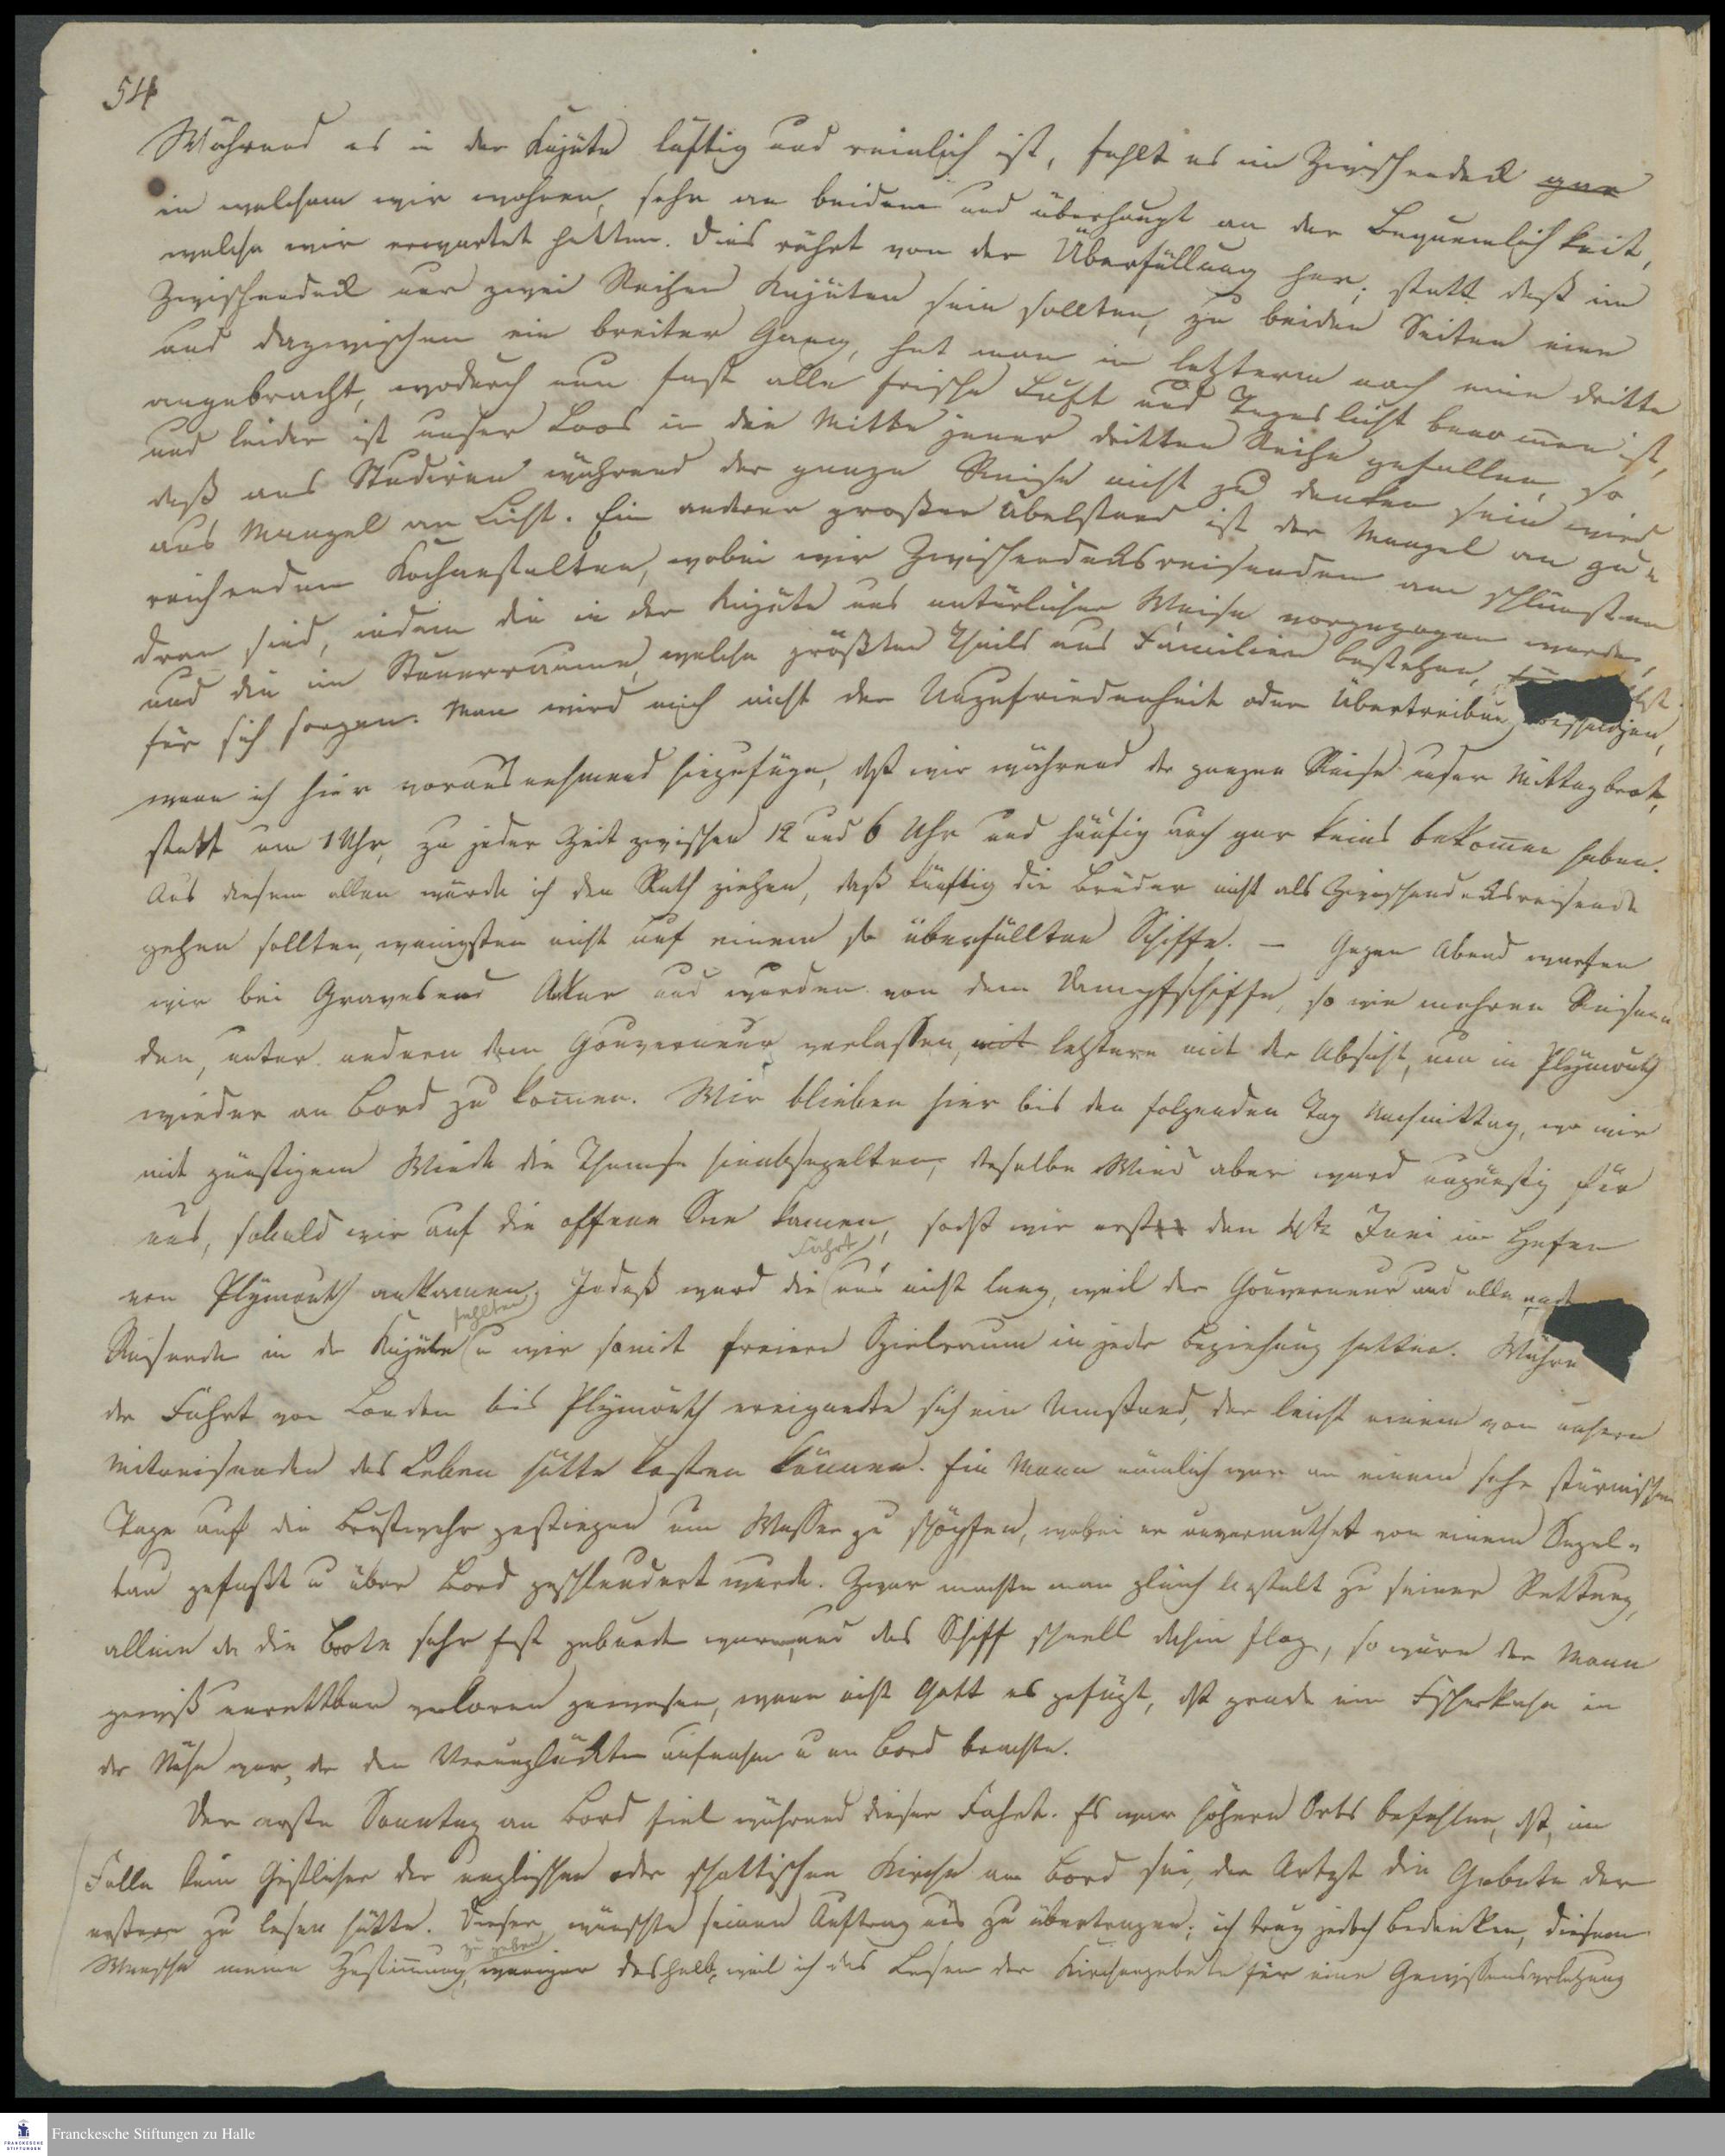 54
Während es in der Kajüte luftig und reinlich ist, fehlt es im Zwischendeck gar
in welchem wir wohnen, sehr an beidem und überhaupt an der Bequemlichkeit,
welche wir erwartet hatten. Dies rührt von der Überfüllung her; statt daß im
Zwischendeck nur zwei Reihen Kajüten sein sollten, zu beiden Seiten eine
und dazwischen ein breiter Gang, hat man in letzterm noch eine dritte
angebracht, wodurch nun fast alle frische Luft und Tageslicht benommen ist,
und leider ist unser Loos in die Mitte jener dritten Reihe gefallen, so
daß ans Studiren während der ganze Reise nicht zu denken sein wird
aus Mangel an Licht. Ein anderer großer Übelstand ist der Mangel an zu-
reichenden Kochanstalten, wobei wir Zwischendecksreisenden am schlimmsten
dran sind, indem die in der Kajüte uns natürlicher Weise vorgezogen werden,
und die im Steuerraume, welche größten Theils aus Familien bestehen,
für sich sorgen. Man wird mich nicht der Unzufriedenheit oder Übertreibun beschuldigen,
wenn ich hier vorausnehmend hinzufüge, daß wir während der ganzen Reise unser Mittagbrot,
statt um 1 Uhr, zu jeder Zeit zwischen 12 und 6 Uhr und häufig auch gar keins bekommen haben.
Aus diesem allen würde ich den Rath ziehen, daß künftig die Brüder nicht als Zwischendecksreisende
gehen sollten, wenigsten nicht auf einem so überfüllten Schiffe. — Gegen Abend warfen
wir bei Gravesend Anker und wurden von dem Dampfschiffe, so wie mehren Reisen-
den, unter andern dem Gouverneur verlassen, mit letztere mit der Absicht, um in Plymouth
wieder an Bord zu kommen. Wir blieben hier bis den folgenden Tag Nachmittag, wo wir
mit günstigem Winde die Themse hinabsegelten, derselbe Wind aber ward ungünstig für
uns, sobald wir auf die offene See kamen, sodß wir erst den 4ten Juni im Hafen
von Plymouth ankamen. Indeß ward die Fahrt uns nicht lang, weil der Gouverneur und alle
Reisende in der Kajüte fehlten u wir somit freiere Spielraum in jeder Beziehung hatten. Währe
der Fahrt von London bis Plymouth ereignete sich ein Umstand, der leicht einem von unsern
Mitreisenden das Leben hätte kosten können. Ein Mann nämlich war an einem sehr stürmischen
Tage auf die Brustwehr gestiegen um Wasser zu schöpfen, wobei er unvermuthet von einem Segel-
tau gefaßt u über Bord geschleudert wurde. Zwar machte man gleich Anstalt zu seiner Rettung,
allein da die Boote sehr fest gebunden waren, und das Schiff schnell dahin flog, so wäre der Mann
gewiß unrettbar verloren gewesen, wenn nicht Gott es gefügt, daß grade ein Fischerkahn in
der Nähe war, der den Verunglückten aufnahm u an Bord brachte.
Der erste Sonntag an Bord fiel während dieser Fahrt. Es war höhern Orts befohlen, daß, im
Falle kein Geistlicher der englischen oder schottischen Kirche am Bord sei, der Artzt die Gebete der
erstern zu lesen hätte. Dieser wünschte seinen Auftrag uns zu übertragen; ich trug jedoch Bedenken, diesem
Wunsche meine Zustimmung zu geben, weniger deshalb, weil ich das Lesen der Kirchengebete für eine Gewissensverletzung
Franckesche Stiftungen zu Halle